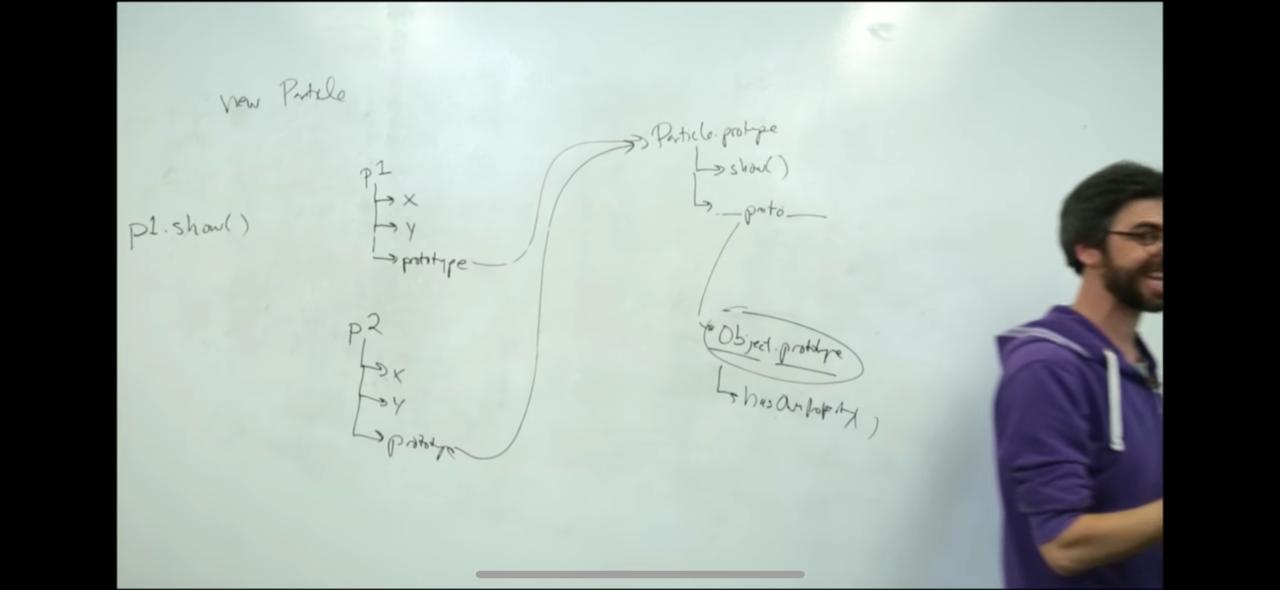 new Particle
p1.show()
p1
x
y
prototype
p2
x
y
prototype
Particle.protype
show()
__proto__
Object.prototype
hasOwnProperty()